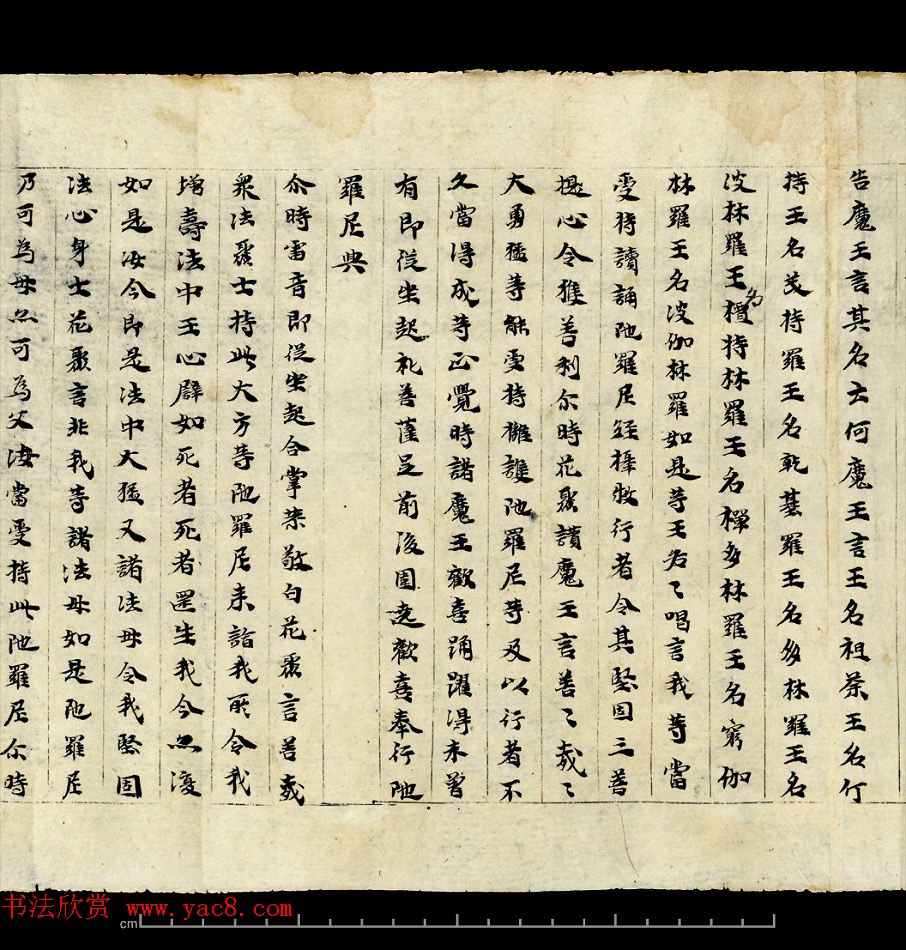 告魔王言其名云何魔王言王名祖荼王名仃
持王名茂持羅王名乾基羅王名多林羅王名
波林羅王名檀持林羅王名禪多林羅王名窮伽
林羅王名波伽林羅如是等王各〻唱言我等當
受持讀誦陁羅尼經攝救行者令其堅固三菩
提心令獲善利尒時花聚讃魔王言善〻哉〻
大勇猛等能受持擁護陁羅尼等及以行者不
久當得成等正覺時諸魔王歡喜踊躍得未曾
有即從坐起礼菩薩足前後圍遶歡喜奉行陁
羅尼典
尒時雷音即從坐起合掌恭敬白花聚言善哉
衆法聚士持此大方等陁羅尼来詣我所令我
增壽法中王心譬如死者死者罡生我今亦復
如是汝今即是法中大猛又諸法母令我堅固
法心身士花聚言非我等諸法母如是陁羅尼
乃可為母亦可為父汝當受持此陁羅尼尒時
书法欣赏 www.yac8.com
cm